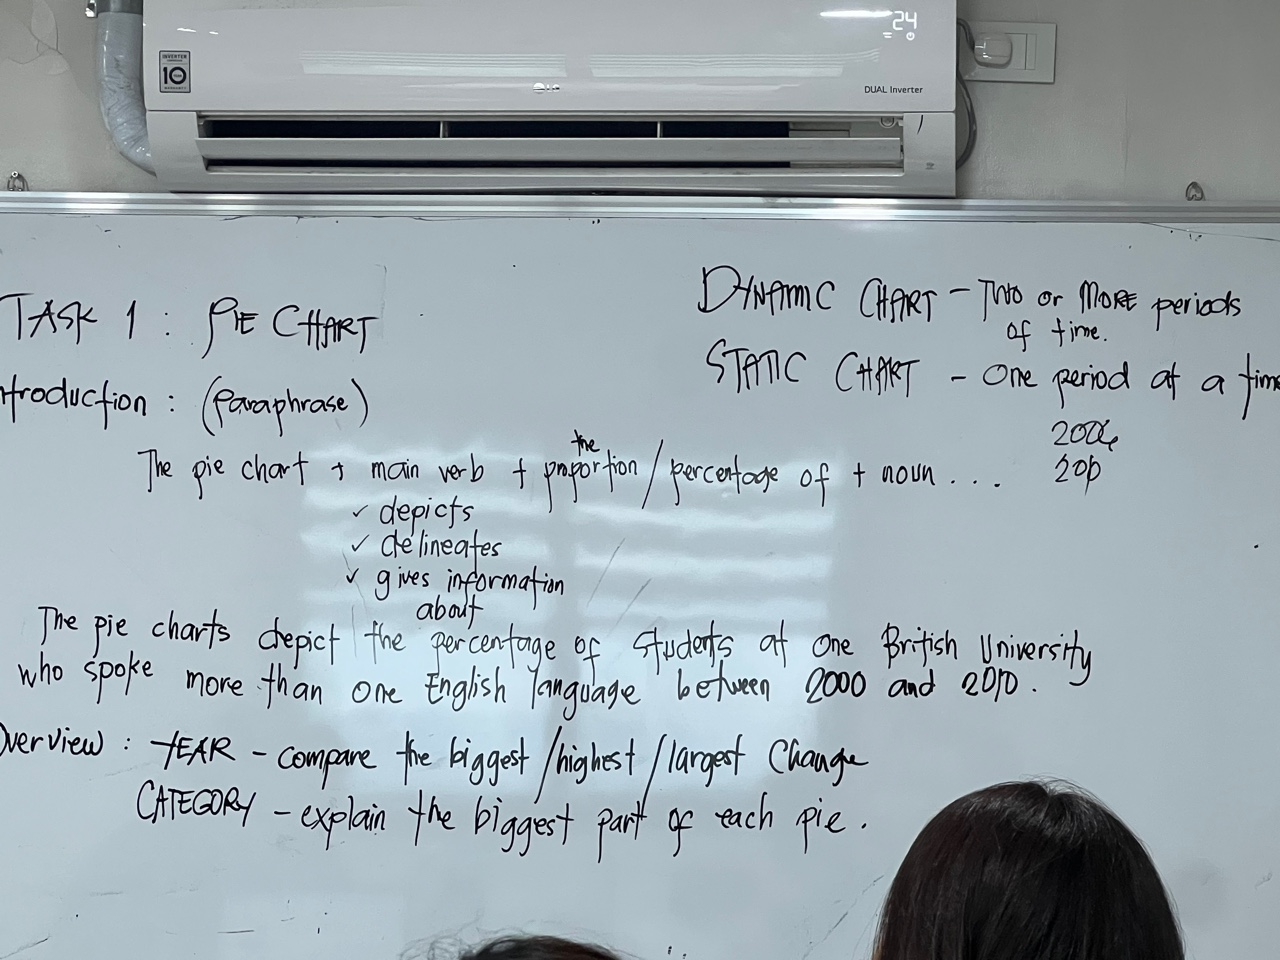 24
INVERTER
10
WARRANTY
LG
DUAL Inverter
TASK 1 : PIE CHART
ntroduction : (Paraphrase)
DYNAMIC CHART - TWO or MORE periods
of time.
STATIC CHART - One period at a time
2010
the
The pie chart + main verb + proportion / percentage of + noun ...
✓ depicts
✓ delineates
✓ gives information
about
The pie charts depict the percentage of students at one British University
who spoke more than one English language between 2000 and 2010.
verview : YEAR - compare the biggest / highest / largest change
CATEGORY - explain the biggest part of each pie.